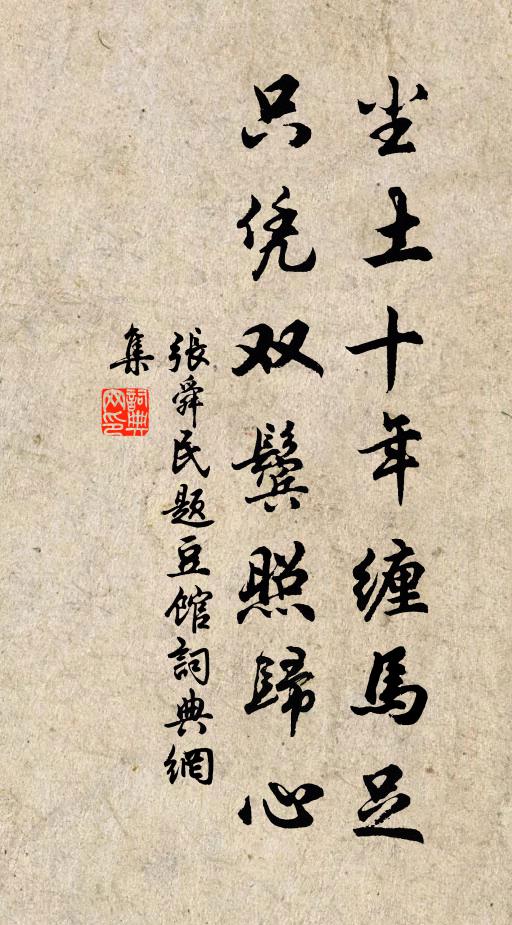 尘土十年缠馬足
只凭双鬓照歸心
張舜民题豆馆詞典網
集
詞典网印